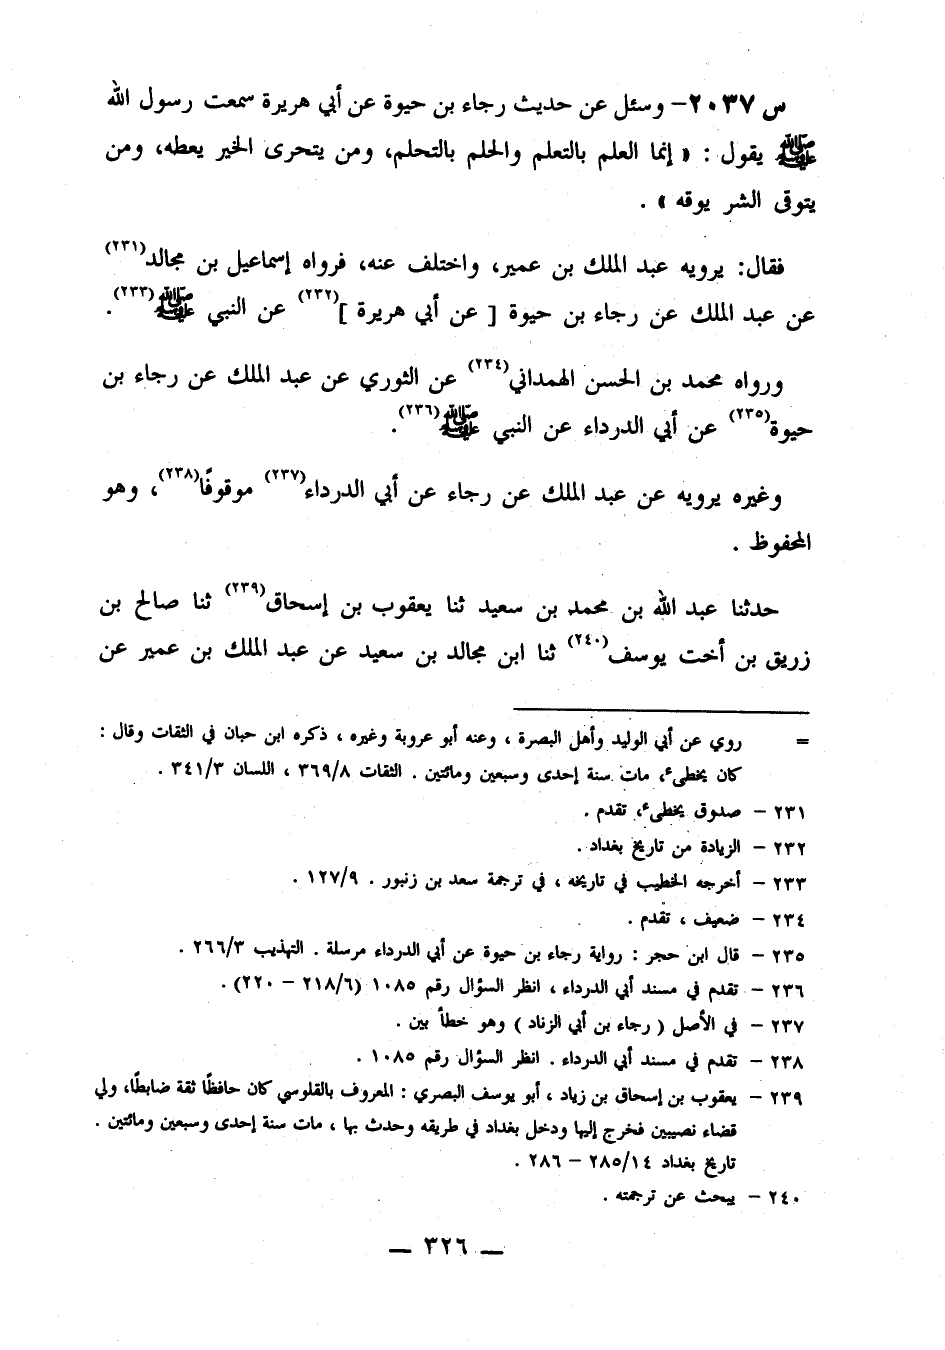 س ٢٠٣٧- وسئل عن حديث رجاء بن حيوة عن أبي هريرة سمعت رسول الله
ﷺ يقول : « إنما العلم بالتعلم والحلم بالتحلم، ومن يتحرى الخير يعطه، ومن
يتوقى الشر يوقه » .
فقال: يرويه عبد الملك بن عمير، واختلف عنه، فرواه إسماعيل بن مجالد(٢٣١)
عن عبد الملك عن رجاء بن حيوة [ عن أبي هريرة ](٢٣٢) عن النبي ﷺ(٢٣٣) .
ورواه محمد بن الحسن الهمداني(٢٣٤) عن الثوري عن عبد الملك عن رجاء بن
حيوة(٢٣٥) عن أبي الدرداء عن النبي ﷺ(٢٣٦).
وغيره يرويه عن عبد الملك عن رجاء عن أبي الدرداء(٢٣٧) موقوفًا(٢٣٨)، وهو
المحفوظ .
حدثنا عبد الله بن محمد بن سعيد ثنا يعقوب بن إسحاق(٢٣٩) ثنا صالح بن
زريق بن أخت يوسف(٢٤٠) ثنا ابن مجالد بن سعيد عن عبد الملك بن عمير عن
= روي عن أبي الوليد وأهل البصرة ، وعنه أبو عروبة وغيره ، ذكره ابن حبان في الثقات وقال :
كان يخطىء، مات سنة إحدى وسبعين ومائتين . الثقات ٣٦٩/٨ ، اللسان ٣٤١/٣ .
٢٣١ - صدوق يخطىء، تقدم .
٢٣٢ - الزيادة من تاريخ بغداد .
٢٣٣ - أخرجه الخطيب في تاريخه ، في ترجمة سعد بن زنبور . ١٢٧/٩ .
٢٣٤ - ضعيف ، تقدم .
٢٣٥ - قال ابن حجر : رواية رجاء بن حيوة عن أبي الدرداء مرسلة . التهذيب ٢٦٦/٣ .
٢٣٦ - تقدم في مسند أبي الدرداء ، انظر السؤال رقم ١٠٨٥ (٢١٨/٦ - ٢٢٠).
٢٣٧ - في الأصل ( رجاء بن أبي الزناد ) وهو خطأ بين .
٢٣٨ - تقدم في مسند أبي الدرداء . انظر السؤال رقم ١٠٨٥ .
٢٣٩ - يعقوب بن إسحاق بن زياد ، أبو يوسف البصري : المعروف بالقلوسي كان حافظًا ثقة ضابطًا، ولي
قضاء نصيبين فخرج إليها ودخل بغداد في طريقه وحدث بها ، مات سنة إحدى وسبعين ومائتين .
تاريخ بغداد ٢٨٥/١٤ - ٢٨٦ .
٢٤٠ - يبحث عن ترجمته .
— ٣٢٦ —